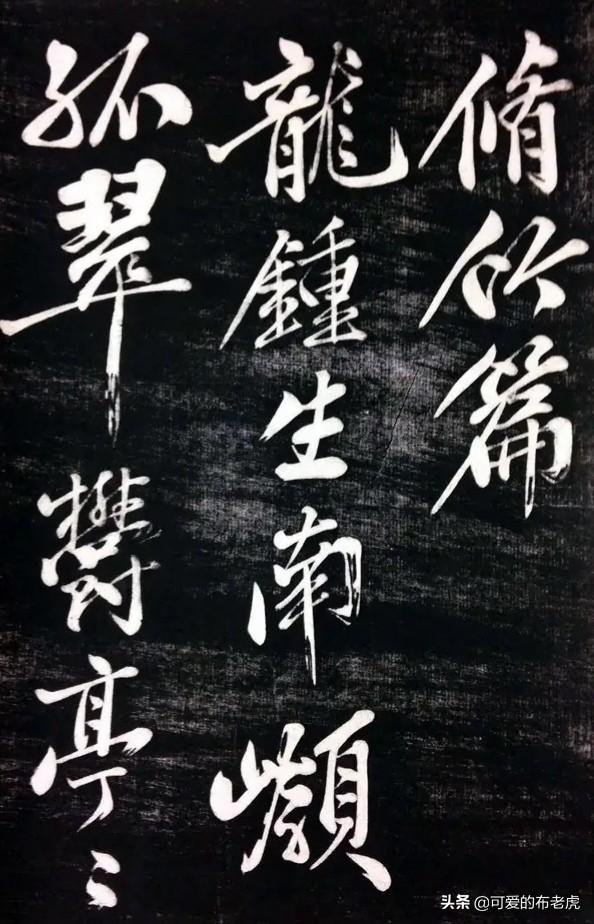 脩竹篇
龍鍾生南
孤翠鬱亭〻
头条 @可爱的布老虎